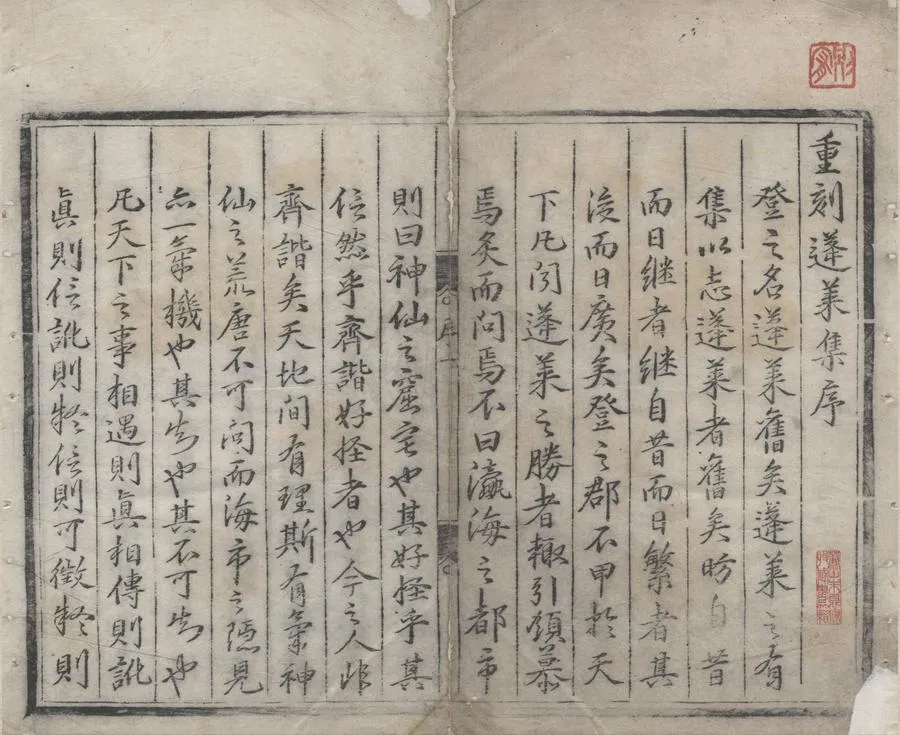 重刻蓬萊集序
登之名蓬萊舊矣蓬萊之有
集以志蓬萊者舊矣昉自昔
而日繼者繼自昔而日繁者其
後而日廣矣登之郡不甲於天
下凡閱蓬萊之勝者輙引領慕
焉炙而問焉不曰瀛海之都市
則曰神仙之窟宅也其好怪乎其
信然乎齊諧好怪者也今之人非
齊諧矣天地間有理斯有氣神
仙之荒唐不可問而海市之隱見
亦一氣機也其知也其不可知也
凡天下之事相遇則眞相傳則訛
眞則信訛則疑信則可徵疑則
序一